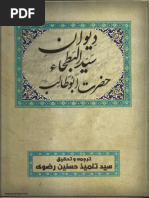 دیوان
سید البطحاء
حضرت ابوطالب
ترجمہ و تحقیق
سید تلمیذ حسنین رضوی